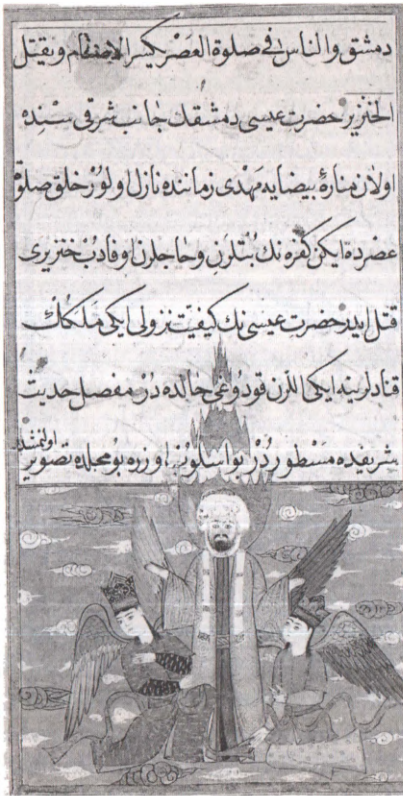 دمشق والناس في صلوة العصر يكسر الاصنام ويقتل
الخنزير حضرت عيسى دمشقك جانب شرقى سنده
اولان منارهٔ بيضايه مهدى زماننده نازل اولور خلق صلوة
عصرده ايكن كفره نك بتلرن وحاجلرن اوفادب خنزيرى
قتل ايدر حضرت عيسى نك كيفيت نزولى ايكى ملكك
قنادلرينه ايكى اللرن قودوغى حالده در مفصل حديث
شريفده مسطوردر بو اسلوب اوزره بو محلده تصوير اولنمشدر